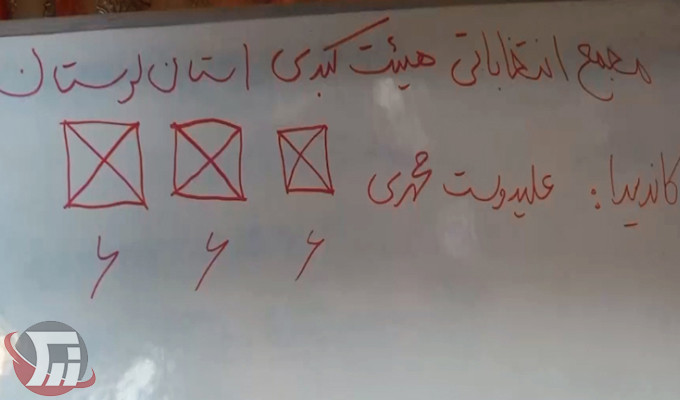 مجمع انتخاباتی هیئت کبدی استان لرستان
کاندیدا: علیدوست مهری
۶ ۶ ۶